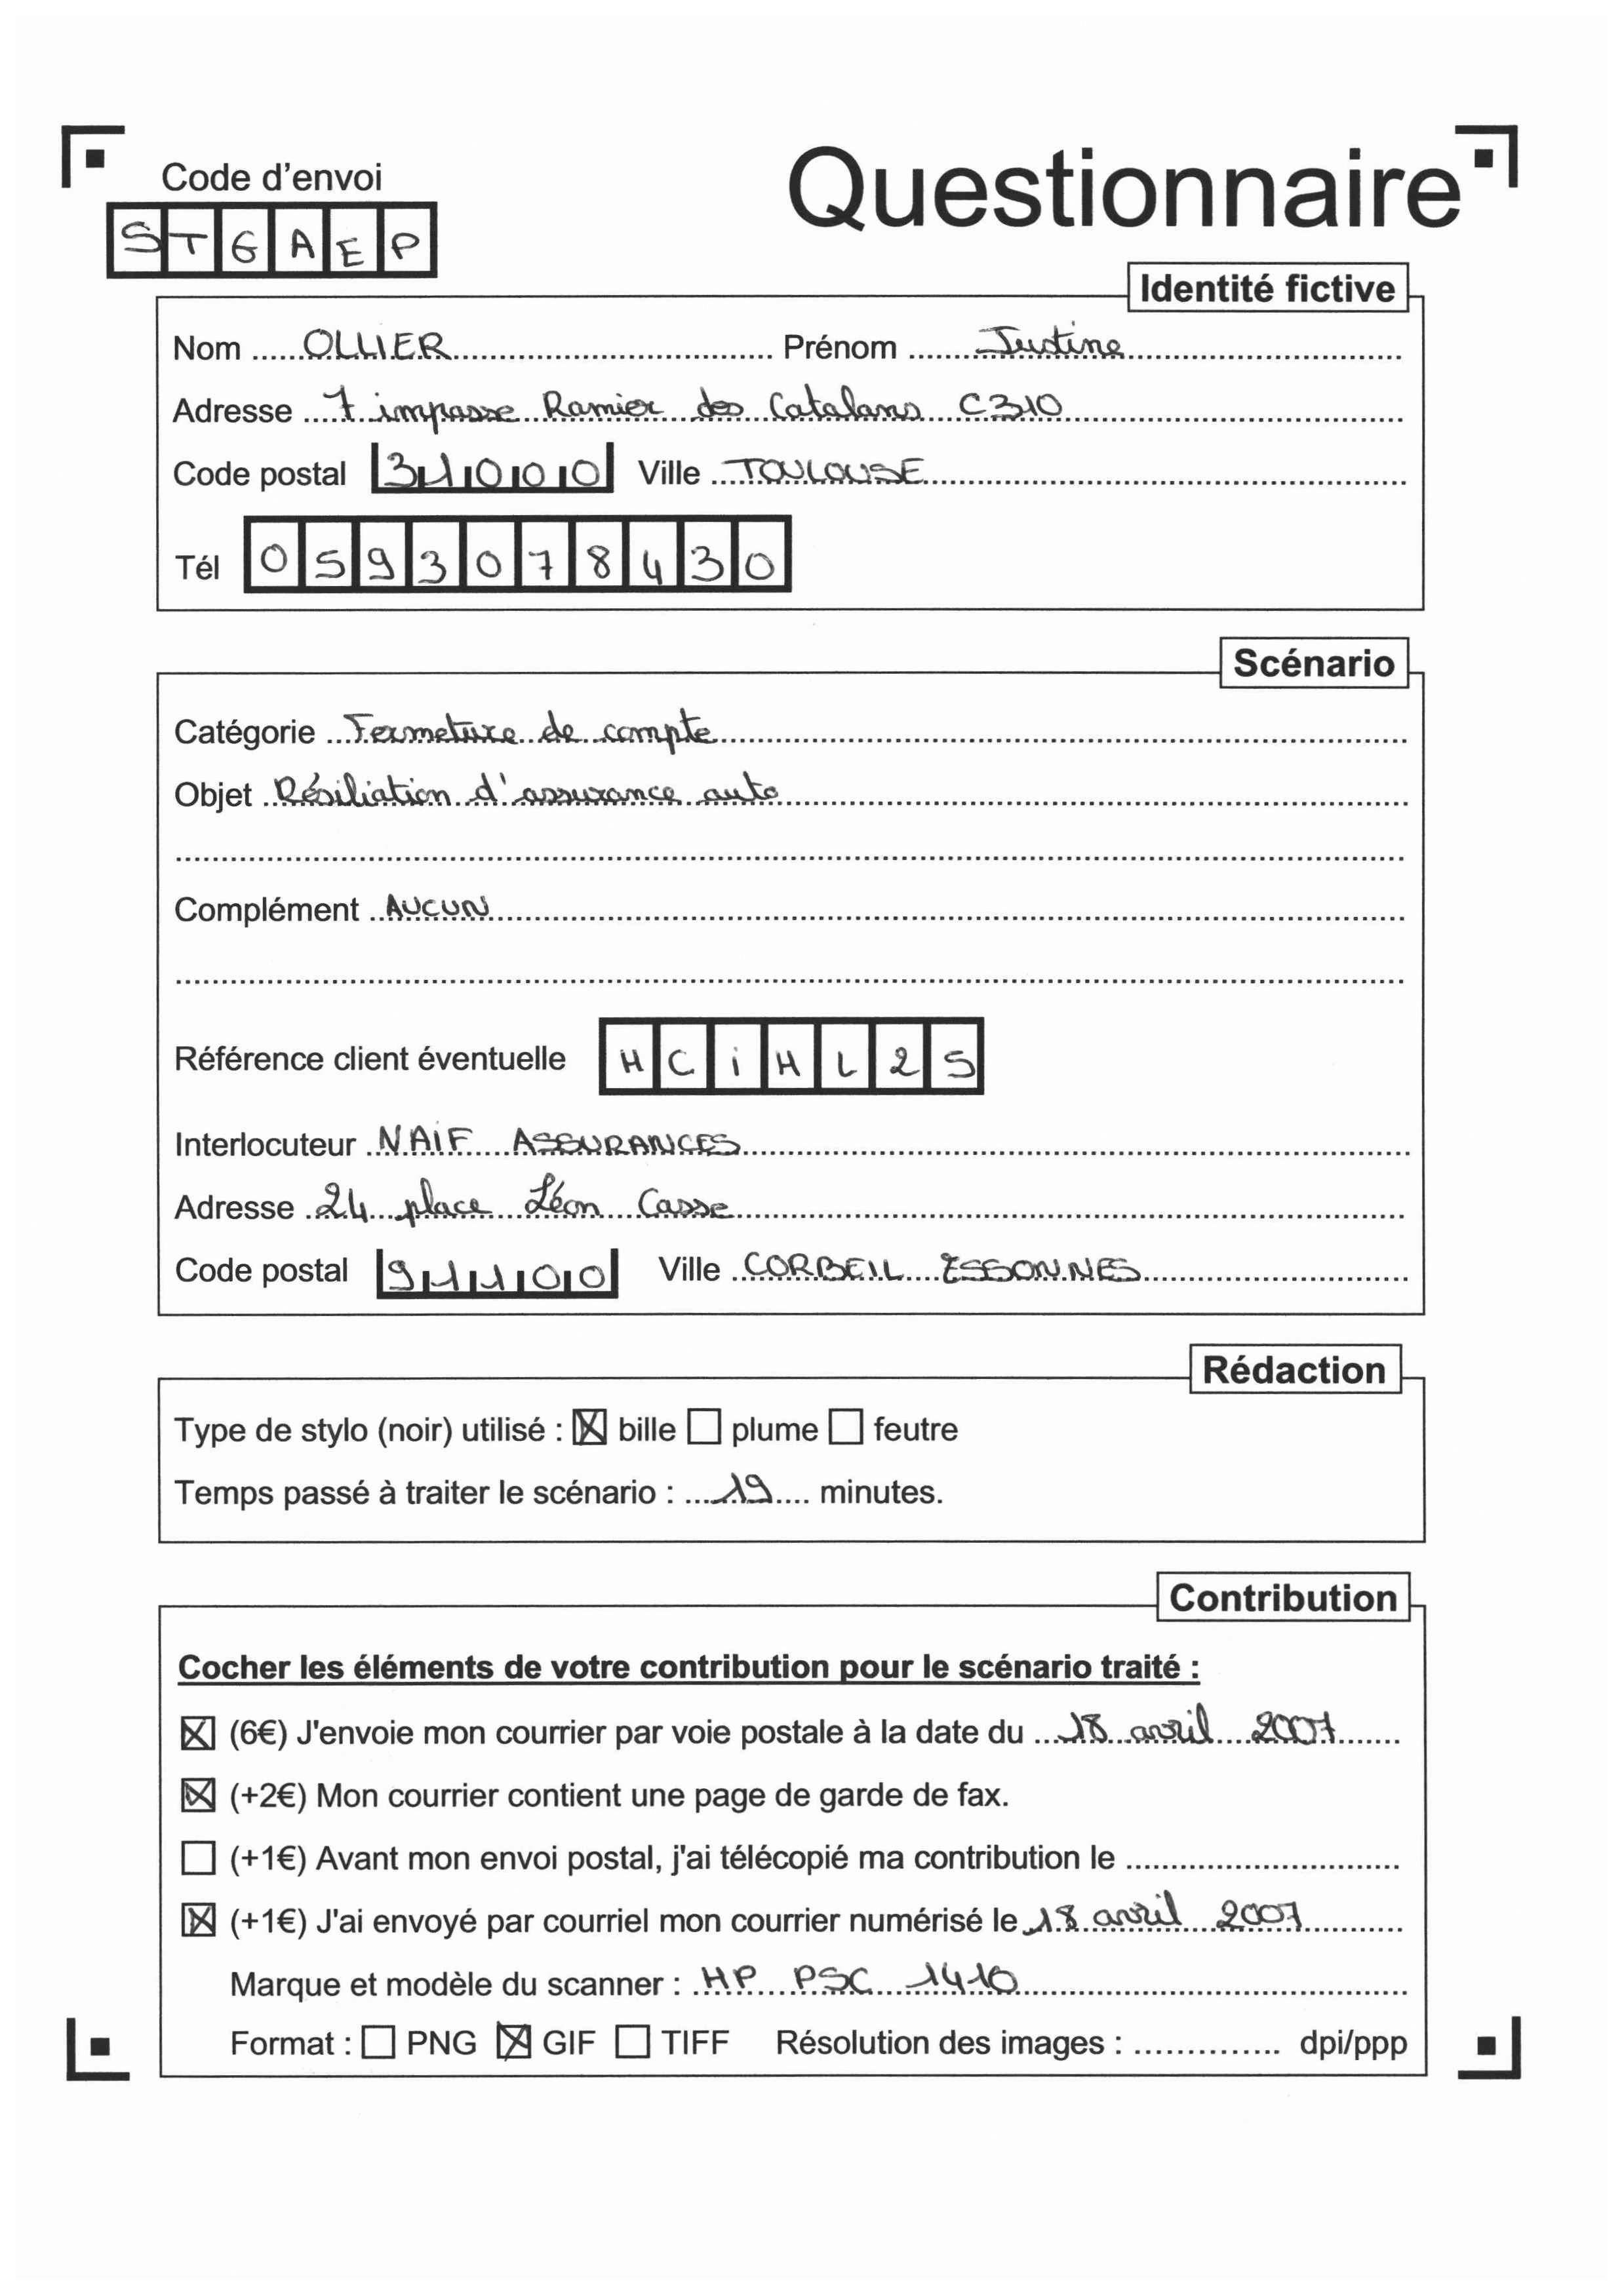 Code d'envoi
Questionnaire
STGAEP
Identité fictive
Nom OLLIER Prénom Justine
Adresse 7 impasse Ramier des Catalans C310
Code postal 31000 Ville TOULOUSE
Tél 0593078430
Scénario
Catégorie Fermeture de compte
Objet Résiliation d'assurance auto
Complément AUCUN
Référence client éventuelle HCiHL25
Interlocuteur NAIF ASSURANCES
Adresse 24 place Léon Casse
Code postal 91100 Ville CORBEIL ESSONNES
Rédaction
Type de stylo (noir) utilisé : ☒ bille ☐ plume ☐ feutre
Temps passé à traiter le scénario : 19 minutes.
Contribution
Cocher les éléments de votre contribution pour le scénario traité :
☒ (6€) J'envoie mon courrier par voie postale à la date du 18 avril 2007
☒ (+2€) Mon courrier contient une page de garde de fax.
☐ (+1€) Avant mon envoi postal, j'ai télécopié ma contribution le ..............................
☒ (+1€) J'ai envoyé par courriel mon courrier numérisé le 18 avril 2007
Marque et modèle du scanner : HP PSC 1410
Format : ☐ PNG ☒ GIF ☐ TIFF Résolution des images : .............. dpi/ppp